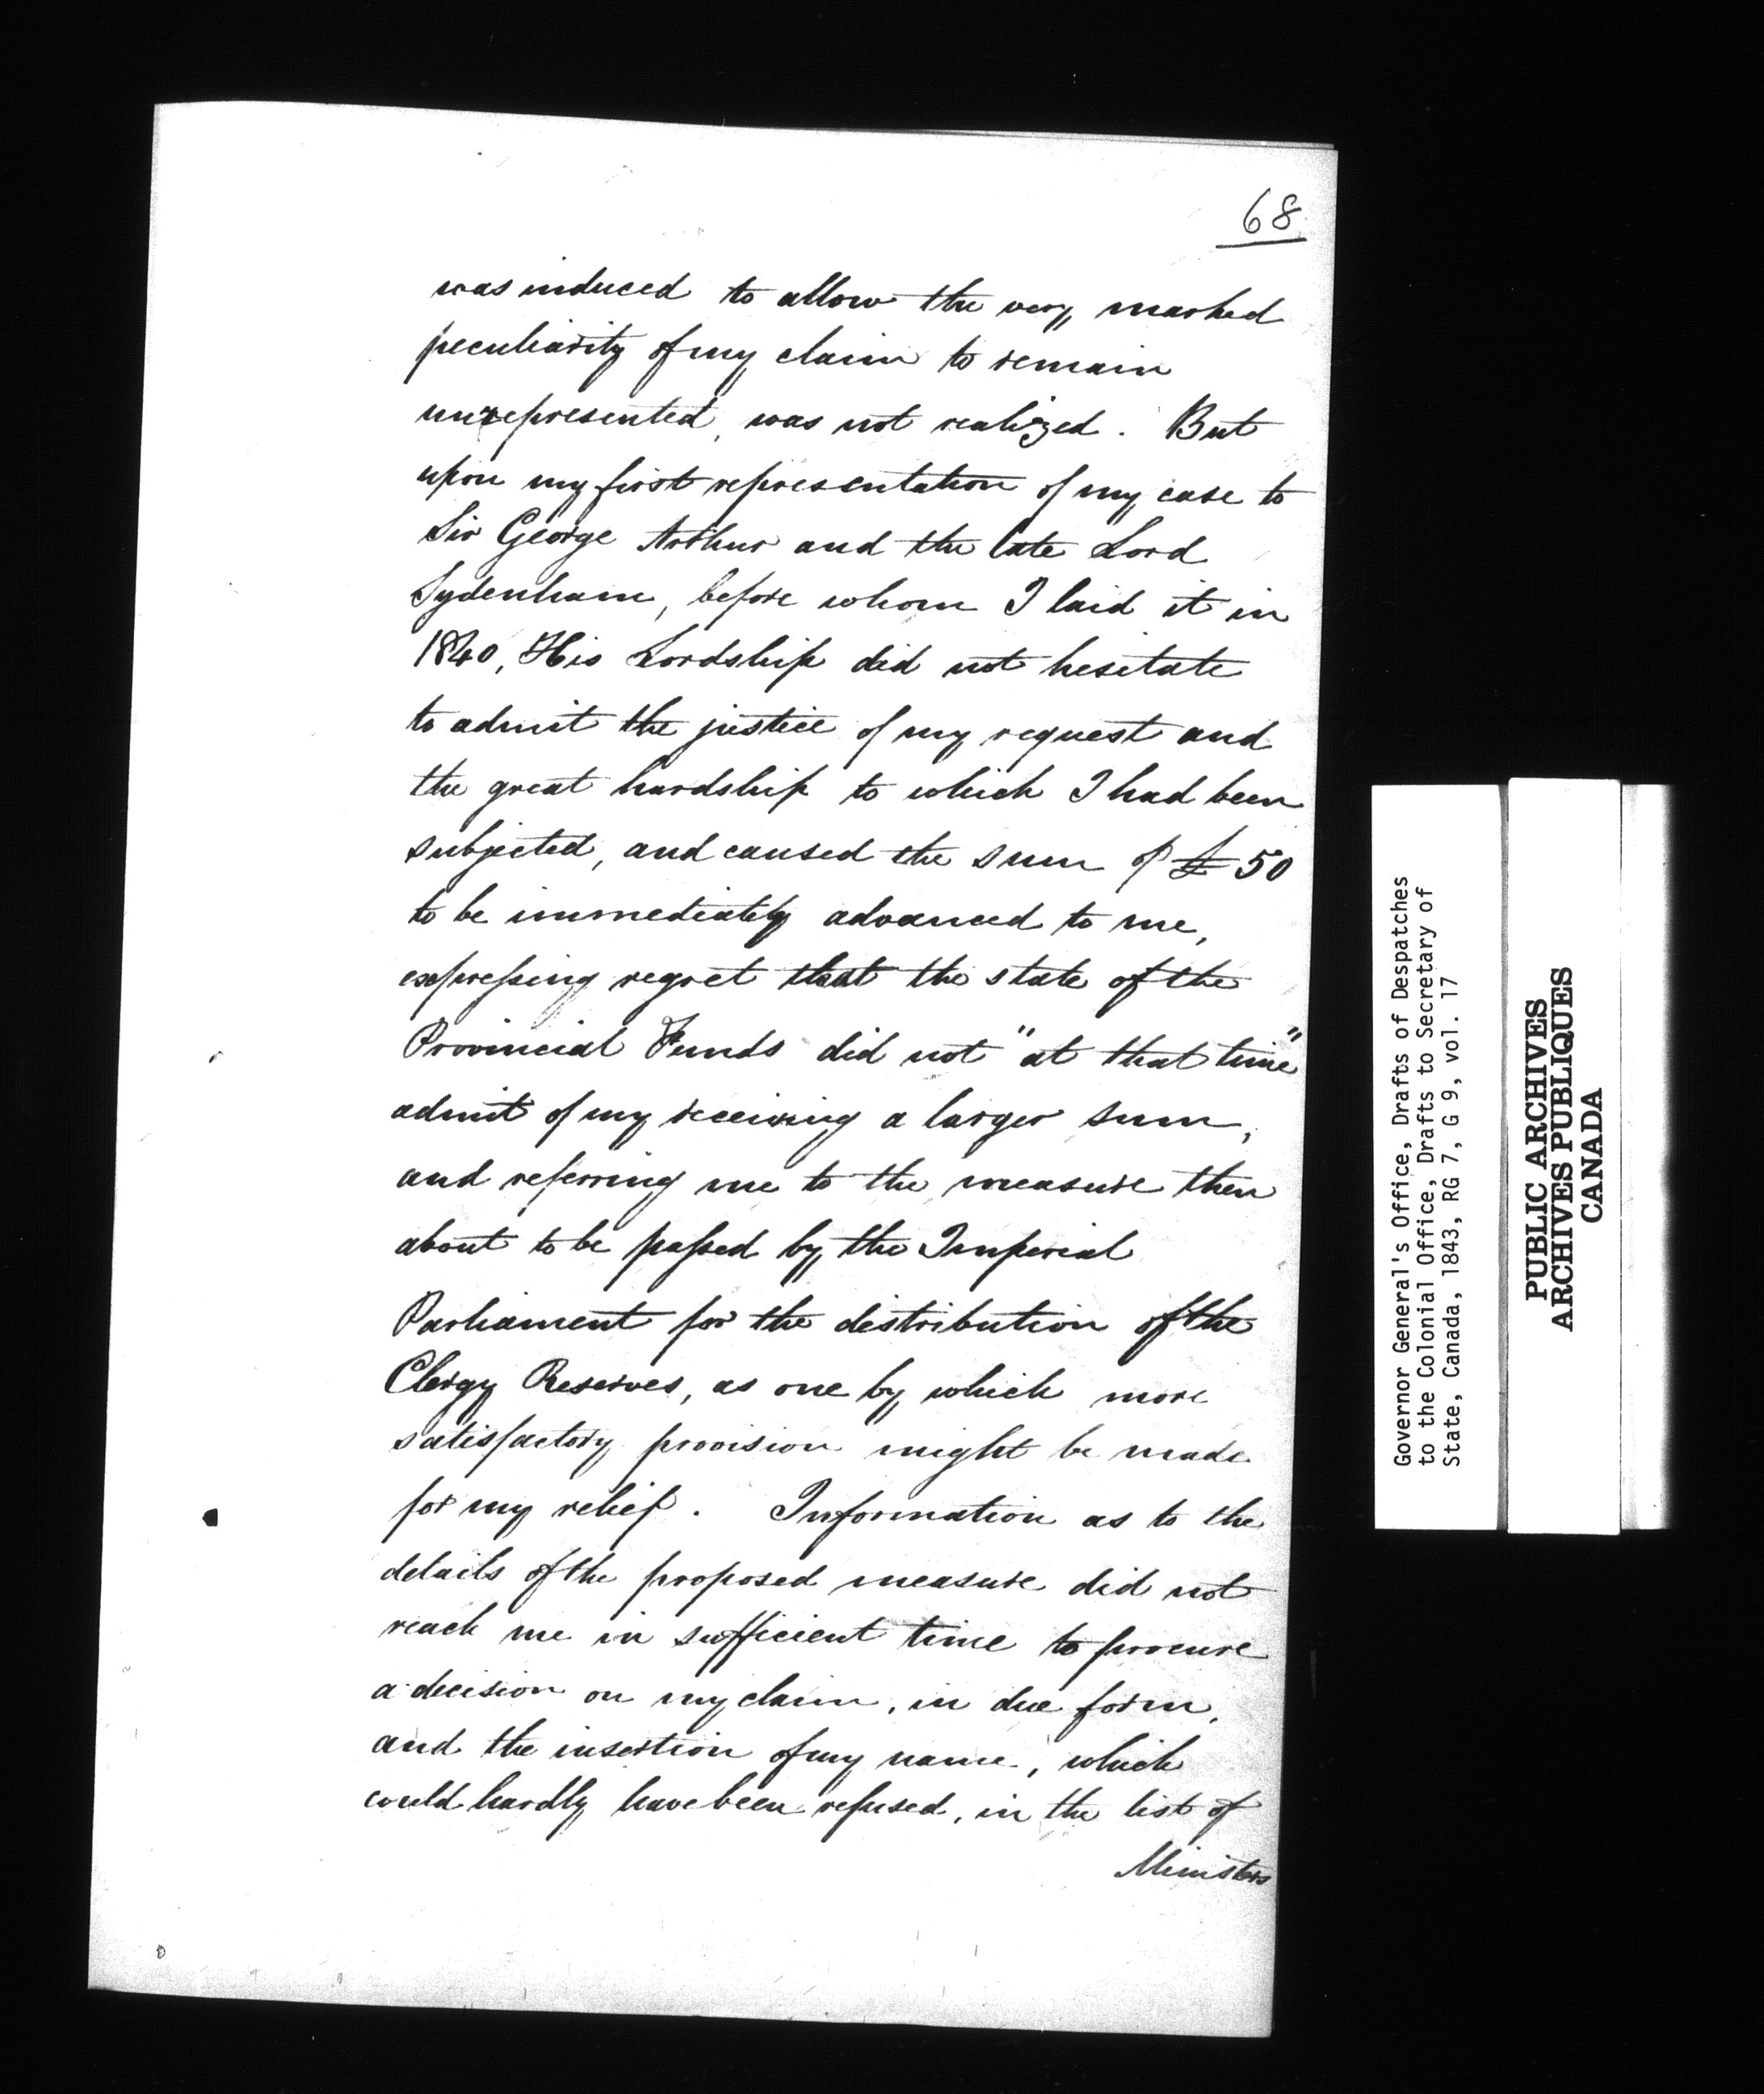 68
was induced to allow the very marked
peculiarity of my claim to remain
unrepresented, was not realized. But
upon my first representation of my case to
Sir George Arthur and the late Lord
Sydenham, before whom I laid it in
1840, His Lordship did not hesitate
to admit the justice of my request and
the great hardship to which I had been
subjected, and caused the sum of £50
to be immediately advanced to me,
expressing regret that the state of the
Provincial Funds did not "at that time"
admit of my receiving a larger sum,
and referring me to the measure then
about to be passed by the Imperial
Parliament for the distribution of the
Clergy Reserves, as one by which more
satisfactory provision might be made
for my relief. Information as to the
details of the proposed measure did not
reach me in sufficient time to procure
a decision on my claim, in due form,
and the insertion of my name, which
could hardly have been refused, in the list of
Ministers
Governor General's Office, Drafts of Despatches
to the Colonial Office, Drafts to Secretary of
State, Canada, 1843, RG 7, G 9, vol. 17
PUBLIC ARCHIVES
ARCHIVES PUBLIQUES
CANADA